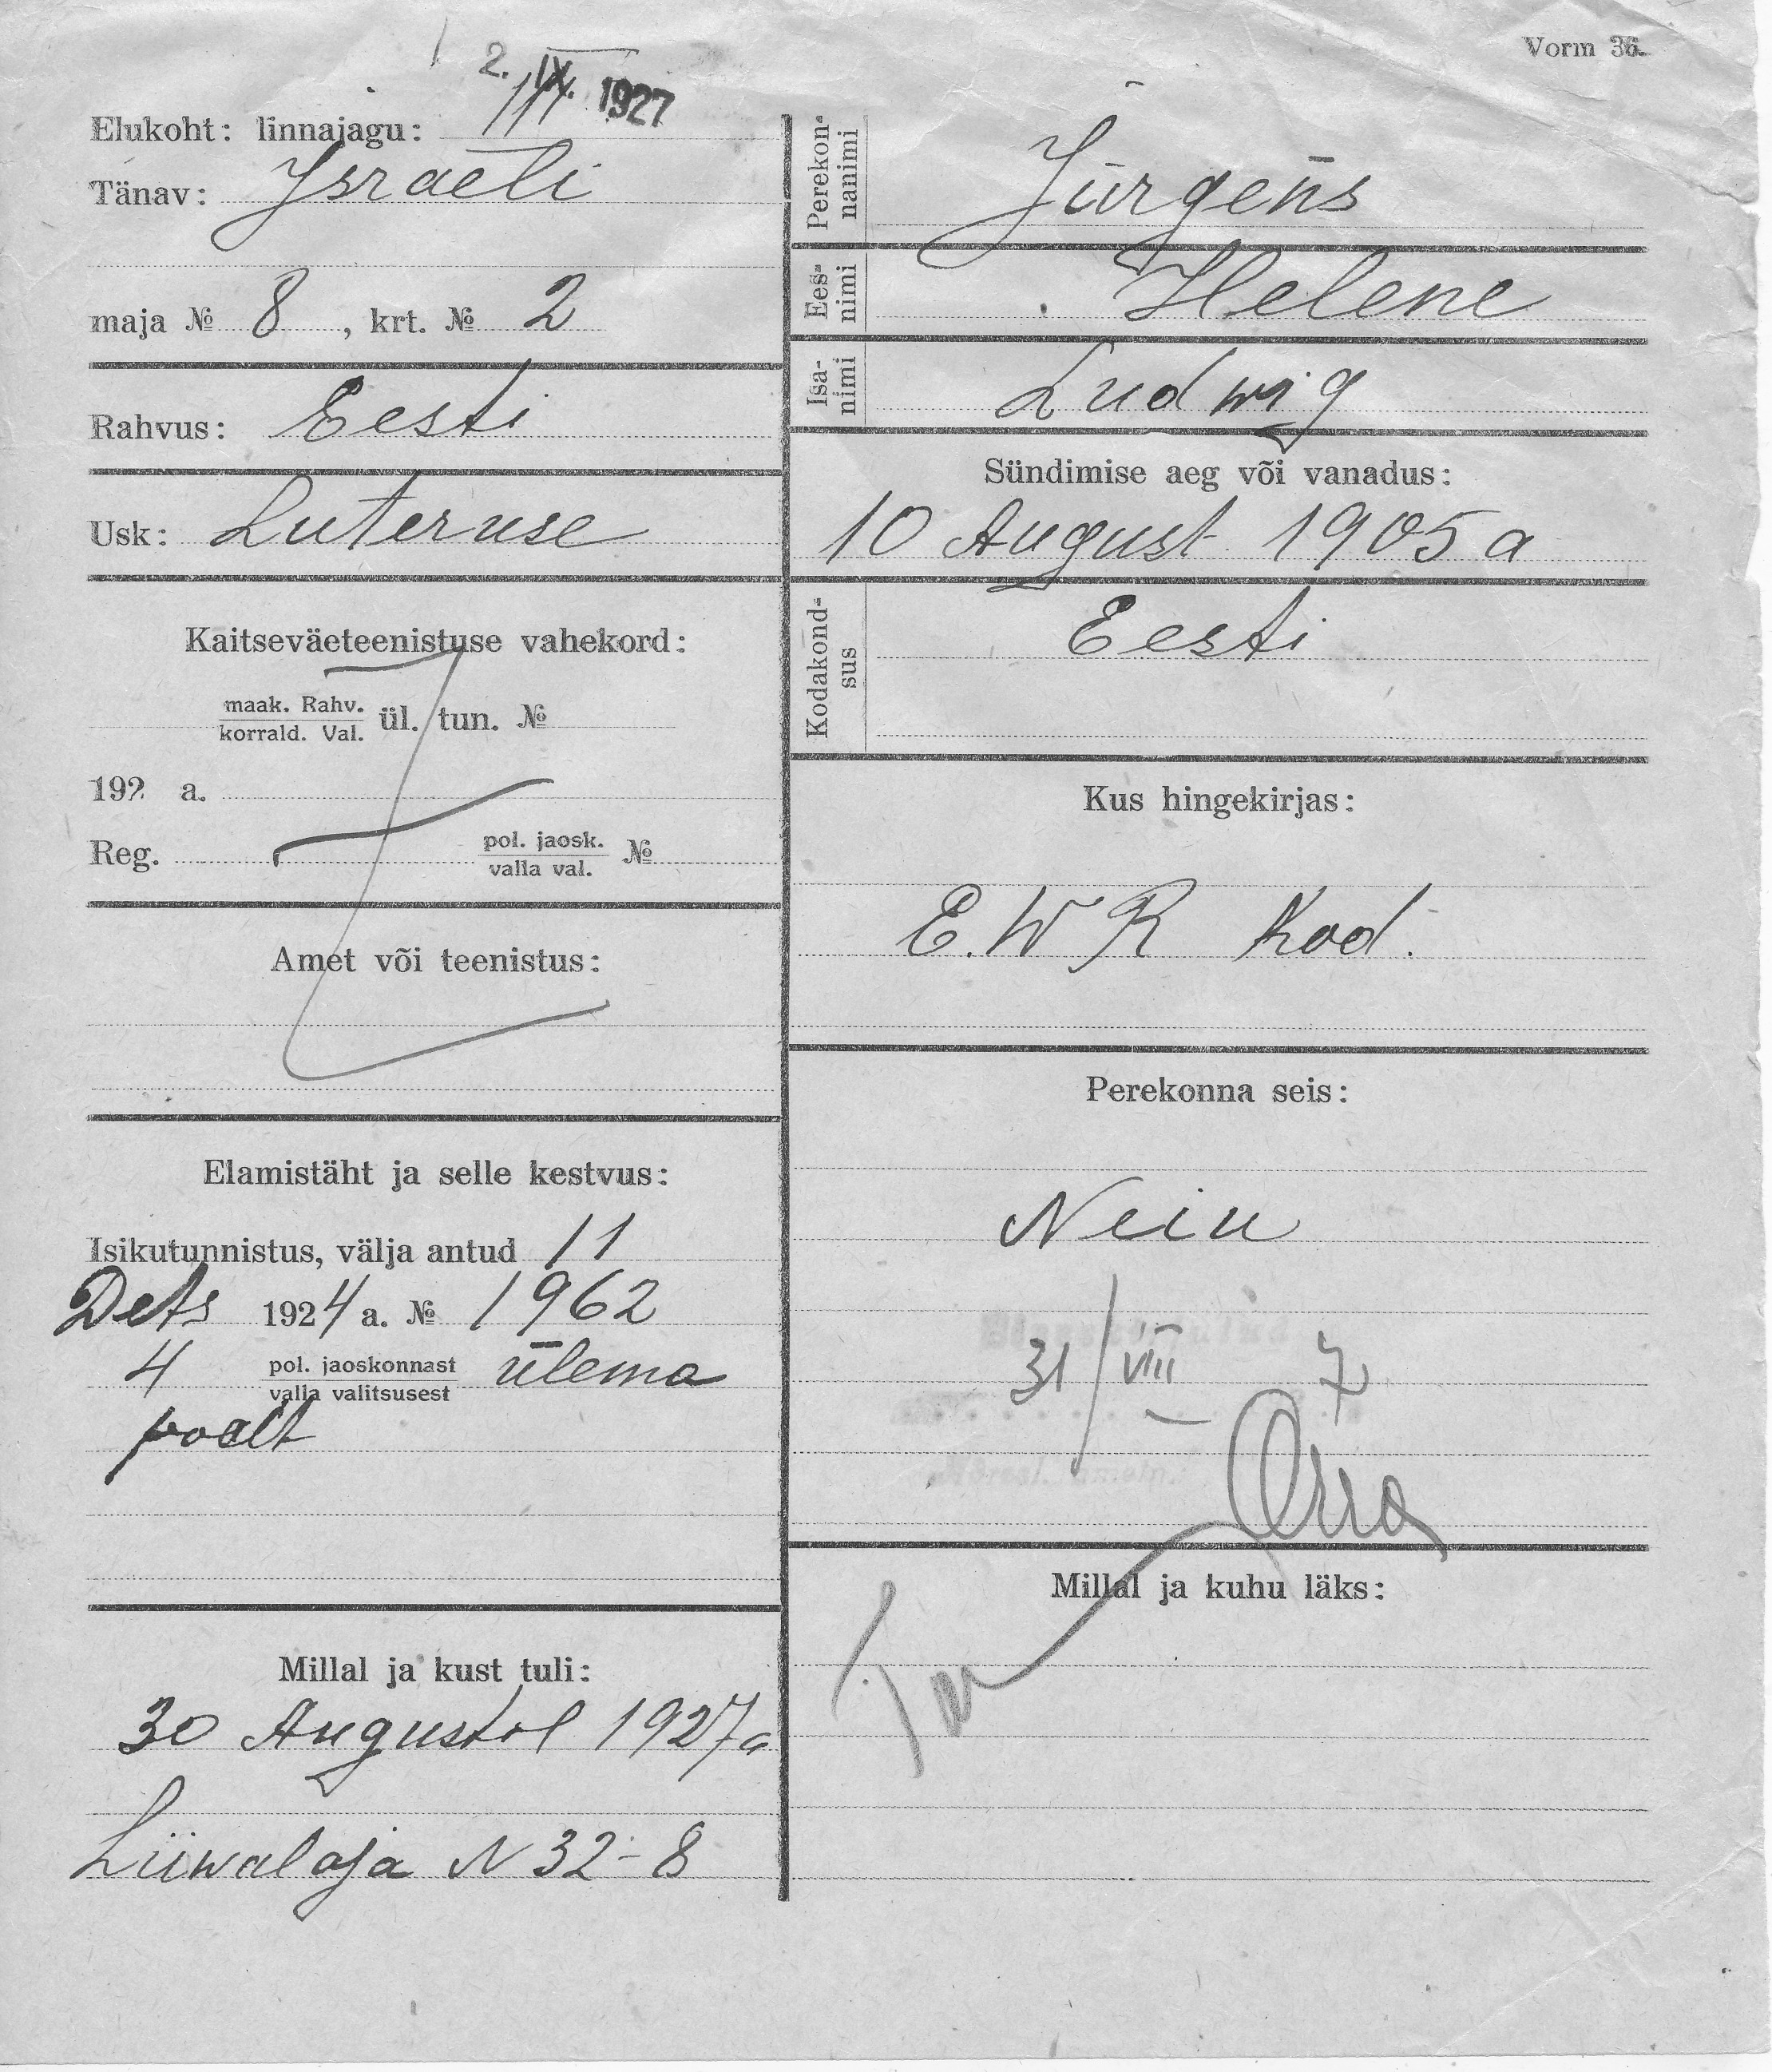 Vorm 36.
2. IX. 1927
Elukoht: linnajagu: III
Tänav: Israeli
maja № 8, krt. № 2
Rahvus: Eesti
Usk: Luteruse
Kaitseväeteenistuse vahekord:
maak. Rahv.
korrald. Val. ül. tun. №
192 a.
Reg. pol. jaosk.
valla val. №
Amet või teenistus:
Elamistäht ja selle kestvus:
Isikutunnistus, välja antud 11
Dets 1924 a. № 1962
4 pol. jaoskonnast ülema
valla valitsusest
poolt
Millal ja kust tuli:
30 Augustil 1927 a
Liiwalaja N 32-8
Perekon-
nanimi Jürgens
Ees-
nimi Helene
Isa-
nimi Ludwig
Sündimise aeg või vanadus:
10 August 1905 a
Kodakond-
sus Eesti
Kus hingekirjas:
E. W R Kod.
Perekonna seis:
Neiu
31/VIII 7
Millal ja kuhu läks: